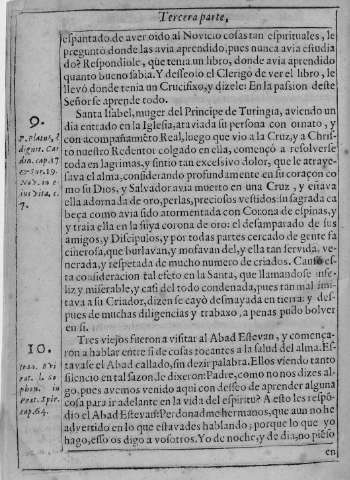 Tercera parte,
espantado de aver oido al Novicio cosas tan espirituales, le
pregunto donde las avia aprendido, pues nunca avia estudia
do? Respondiole, que tenia un libro, donde avia aprendido
quanto bueno sabia. Y desseoso el Clerigo de ver el libro, le
llevò donde tenia un Crucifixo, y dizele: En la passion deste
Señor se aprende todo.
9.
Santa Isabel, muger del Principe de Turingia, aviendo un
dia entrado en la Iglesia, ataviada su persona con ornato, y
con acompañamiento Real, luego que vio a la Cruz, y a Chris-
to nuestro Redentor colgado en ella, començò a resolverse
toda en lagrimas, y sintio tan excelsivo dolor, que le atrave-
sava el alma, considerando profundamente en su coraçon co
mo su Dios, y Salvador avia muerto en una Cruz, y estava
ella adornada de oro, perlas, preciosos vestidos: su sagrada ca
beça como avia sido atormentada con Corona de espinas, y
y traia ella en la suya corona de oro: el desamparado de sus
amigos, y Discipulos, y por todas partes cercado de gente fa
cinerosa, que burlavan, y mofavan del, y ella tan servida, ve-
nerada, y respetada de mucho numero de criados. Causò es-
ta consideracion tal efeto en la Santa, que llamandose infe-
liz y miserable, y casi del todo condenada, pues tan mal imi-
tava a su Criador, dizen se cayò desmayada en tierra: y des-
pues de muchas diligencias y trabaxo, a penas pudo bolver
en si.
10.
Tres viejos fueron a visitar al Abad Estevan, y comença-
ron a hablar entre si de cosas tocantes a la salud del alma. Es-
tavase el Abad callado, sin dezir palabra. Ellos viendo tanto
silencio en tal sazon, le dixeron: Padre, como no nos dizes al-
go, pues avemos venido aqui con desseo de aprender alguna
cosa para ir adelante en la vida del espiritu? A esto les respõ-
dio el Abad Estevan: Perdonadme hermanos, que aun no he
advertido en lo que estavades hablando; porque lo que yo
hago, esso os digo a vosotros. Yo de noche, y de dia, no piẽso
en